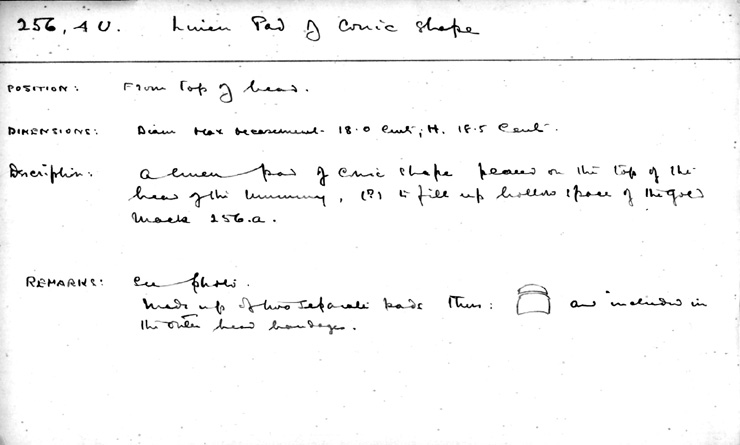 256, 4 U. Linen Pad of Conic Shape
POSITION: From top of head.
DIMENSIONS: Diam Max measurement 18.0 Cent; H. 18.5 Cent.
Description: A linen pad of Conic shape placed on the top of the
head of the mummy, (?) to fill up hollow space of the gold
Mask 256.a.
REMARKS: See photo.
Made up of two separate pads thus: and included in
the outer head bandages.